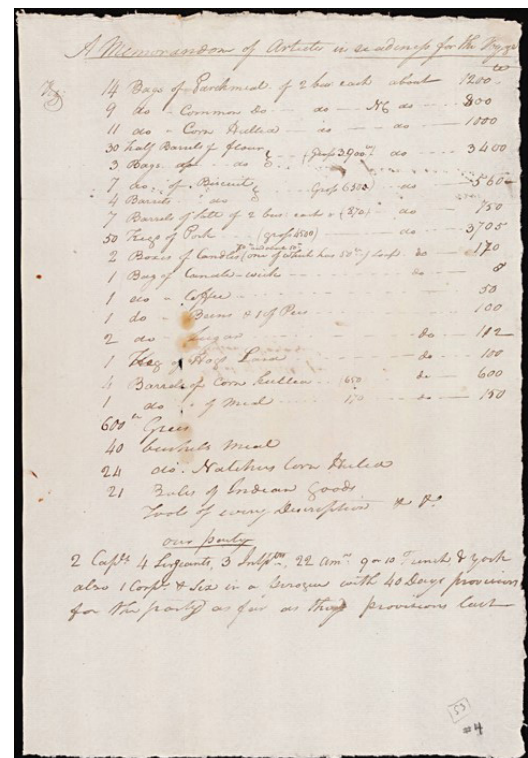 A Memorandom of Articles in readiness for the Voyge
Wt
14 Bags of Parchmeal of 2 bus each about 1200
9 do - Common do - do - do 800
11 do - Corn Hulled - do - do 1000
30 half Barrels of flour (Gross 3900) do - 3400
3 Bags do - do
7 do of Biscuit (Gross 650) do - 560
4 Barrels do
7 Barrels of Salt of 2 bus each (870) - do - 750
50 Kegs of Pork (gross 4500) do - 3705
2 Boxes of Candles (one of which has 50 lb of soap) do - 170
1 Bag of Candle-wick do - 8
1 do - Coffee 50
1 do - Beens & 1 of Pees 100
2 do Sugar do - 112
1 Keg of Hogs Lard do - 100
4 Barrels of Corn hulled 650 do - 600
1 do of Meal 170 do - 150
600 lb Grees
40 bushels meal
24 do. Natchies Corn Huled
21 Bales of Indian goods
Tools of every Description & &.
our party
2 Capts 4 Sergeants, 3 Intptrs, 22 Amns 9 or 10 French & York
also 1 Corpl & Six in a perogue with 40 Days provisions
for the party as far as they provisions last
53
#4